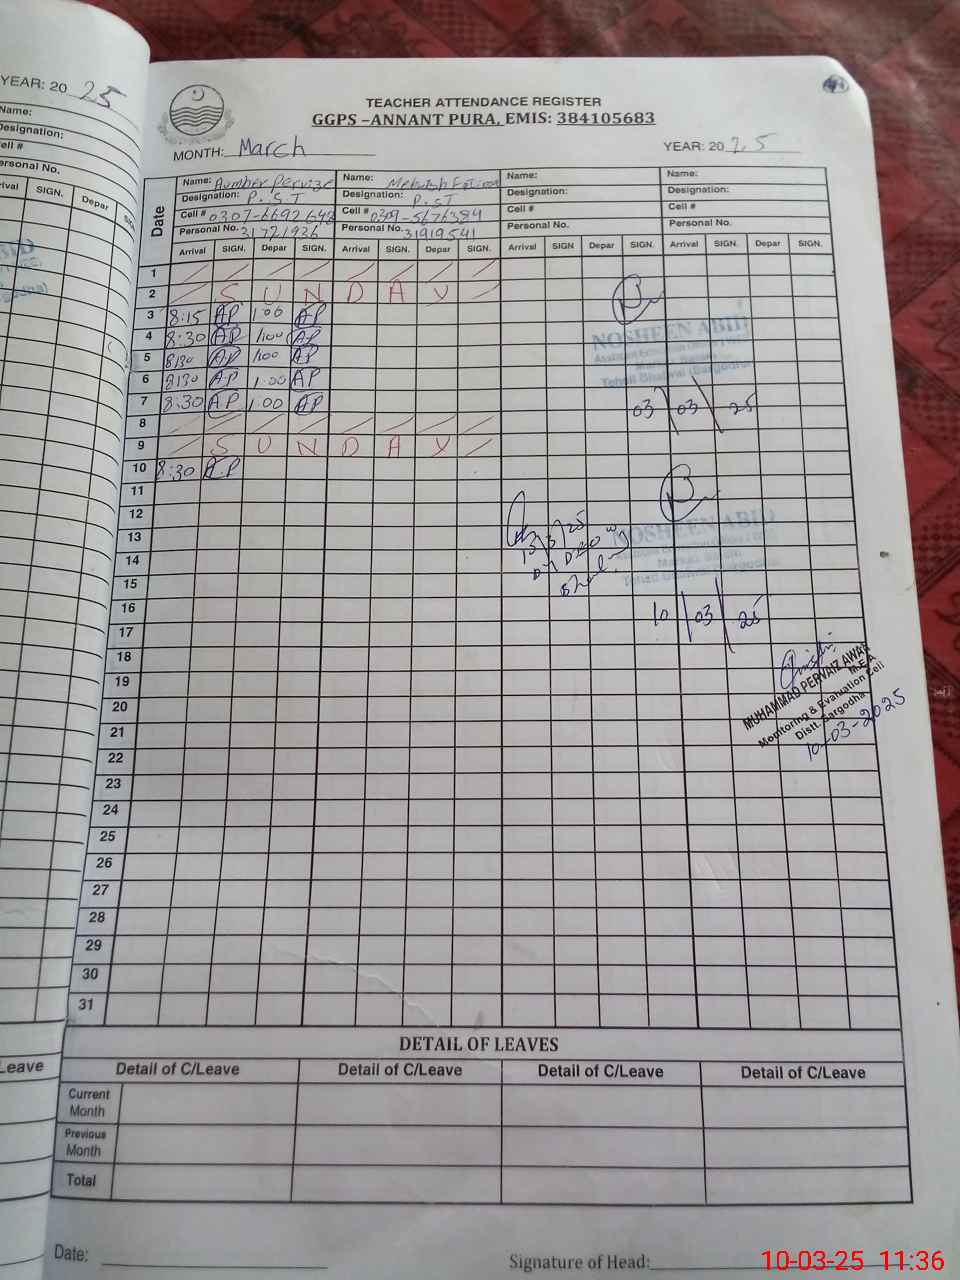 YEAR: 20 25
TEACHER ATTENDANCE REGISTER
GGPS –ANNANT PURA, EMIS: 384105683
MONTH: March
YEAR: 20 25
Name: Aumber Pervize Name: Name: Name:
Designation: P.S.T Designation: P.ST Designation: Designation:
Cell # 0307-6692648 Cell # 0309-5676384 Cell # Cell #
Personal No. 31721926 Personal No. 31919541 Personal No. Personal No.
Date
Arrival SIGN. Depar SIGN. Arrival SIGN. Depar SIGN. Arrival SIGN Depar SIGN. Arrival SIGN. Depar SIGN.
1
2 S U N D A Y
3 8:15 AP 1:00 AP
4 8:30 AP 1:00 AP
5 8:30 AP 1:00 AP
6 8:30 AP 1:00 AP
7 8:30 AP 1:00 AP
8
9 S U N D A Y
10 8:30 AP
11
12
13
14
15
16
17
18
19
20
21
22
23
24
25
26
27
28
29
30
31
NOSHEEN ABID
Tehsil Bhalwal (Sargodha)
03/03/25
13/3/25
NOSHEEN ABID
Tehsil Bhalwal
10/03/25
MUHAMMAD PERVAIZ AWAN
M.E.A
Monitoring & Evaluation Cell
Distt. Sargodha
10-03-2025
DETAIL OF LEAVES
Detail of C/Leave Detail of C/Leave Detail of C/Leave Detail of C/Leave
Current
Month
Previous
Month
Total
Date:
Signature of Head:
10-03-25 11:36
Name:
Designation:
Cell #
Personal No.
SIGN.
Depar
Leave